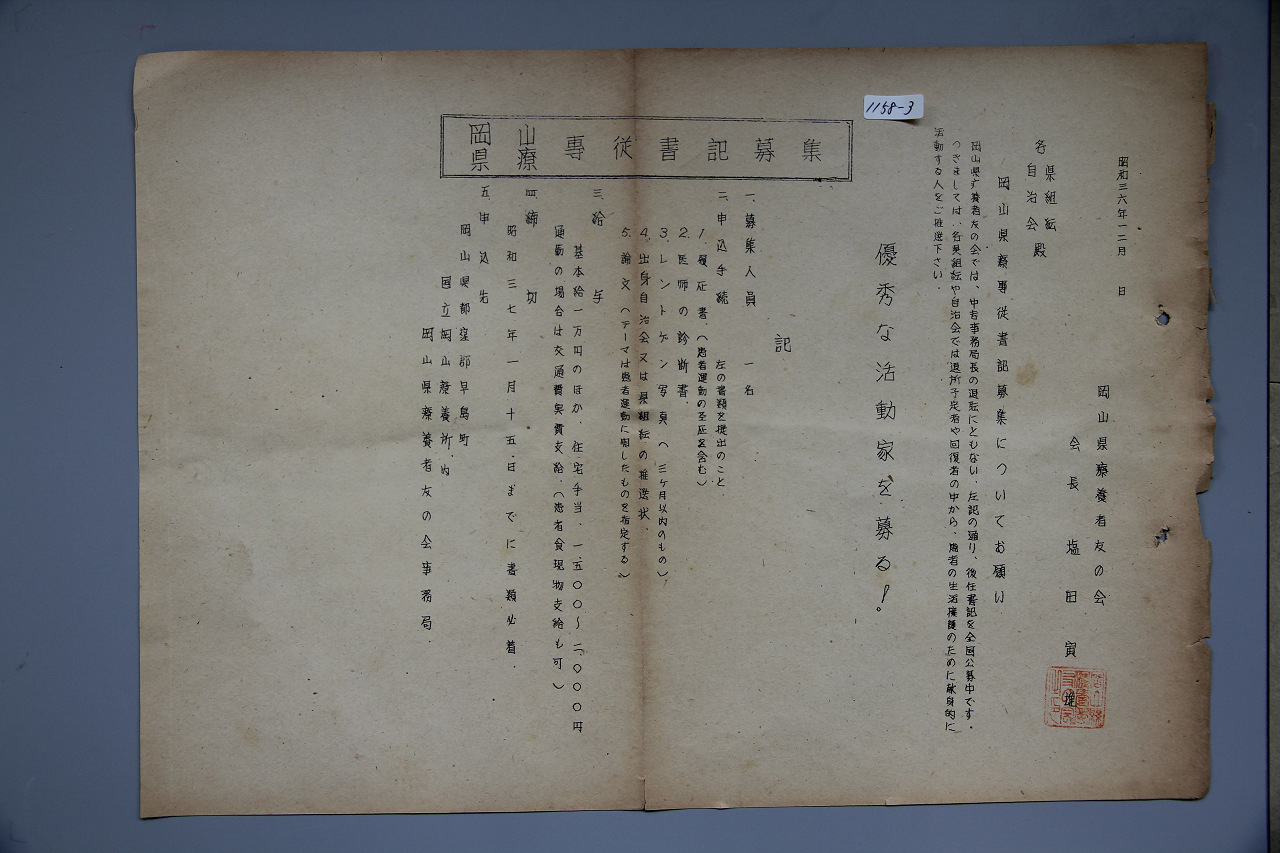 1158-3
昭和三六年一二月　日
岡山県療養者友の会
会長　塩田寅雄
県組織
各自治会殿
岡山県療専従書記募集についてお願い
岡山県療養者友の会では、中吉事務局長の退転にともない、左記の通り、後任書記を全国公募中です。
つきましては、各県組織や自治会では退所予定者や回復者の中から、患者の生活擁護のために献身的に
活動する人をご推選下さい。
優秀な活動家を募る！。
岡山県療専従書記募集
記
一、募集人員　一名
二、申込手続　左の書類を提出のこと.
1. 履歴書、（患者運動の歴を含む）
2. 医師の診断書.
3. レントゲン写真（三ヶ月以内のもの）
4. 出身自治会又は県組織の推選状.
5. 論文（テーマは患者運動に関したものを指定する）
三、給与
基本給一万円のほか、住宅手当、一、五〇〇～二、〇〇〇円
通勤の場合は交通費実費支給.（患者食現物支給も可）
四、締切
昭和三七年一月十五日までに書類必着.
五、申込先
岡山県都窪郡早島町
国立岡山療養所内
岡山県療養者友の会事務局.